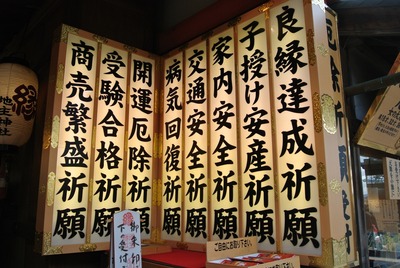 良縁達成祈願
子授け安産祈願
家内安全祈願
交通安全祈願
病気回復祈願
開運厄除祈願
受験合格祈願
商売繁盛祈願
縁
地主神社
ご自由にお取り下さい